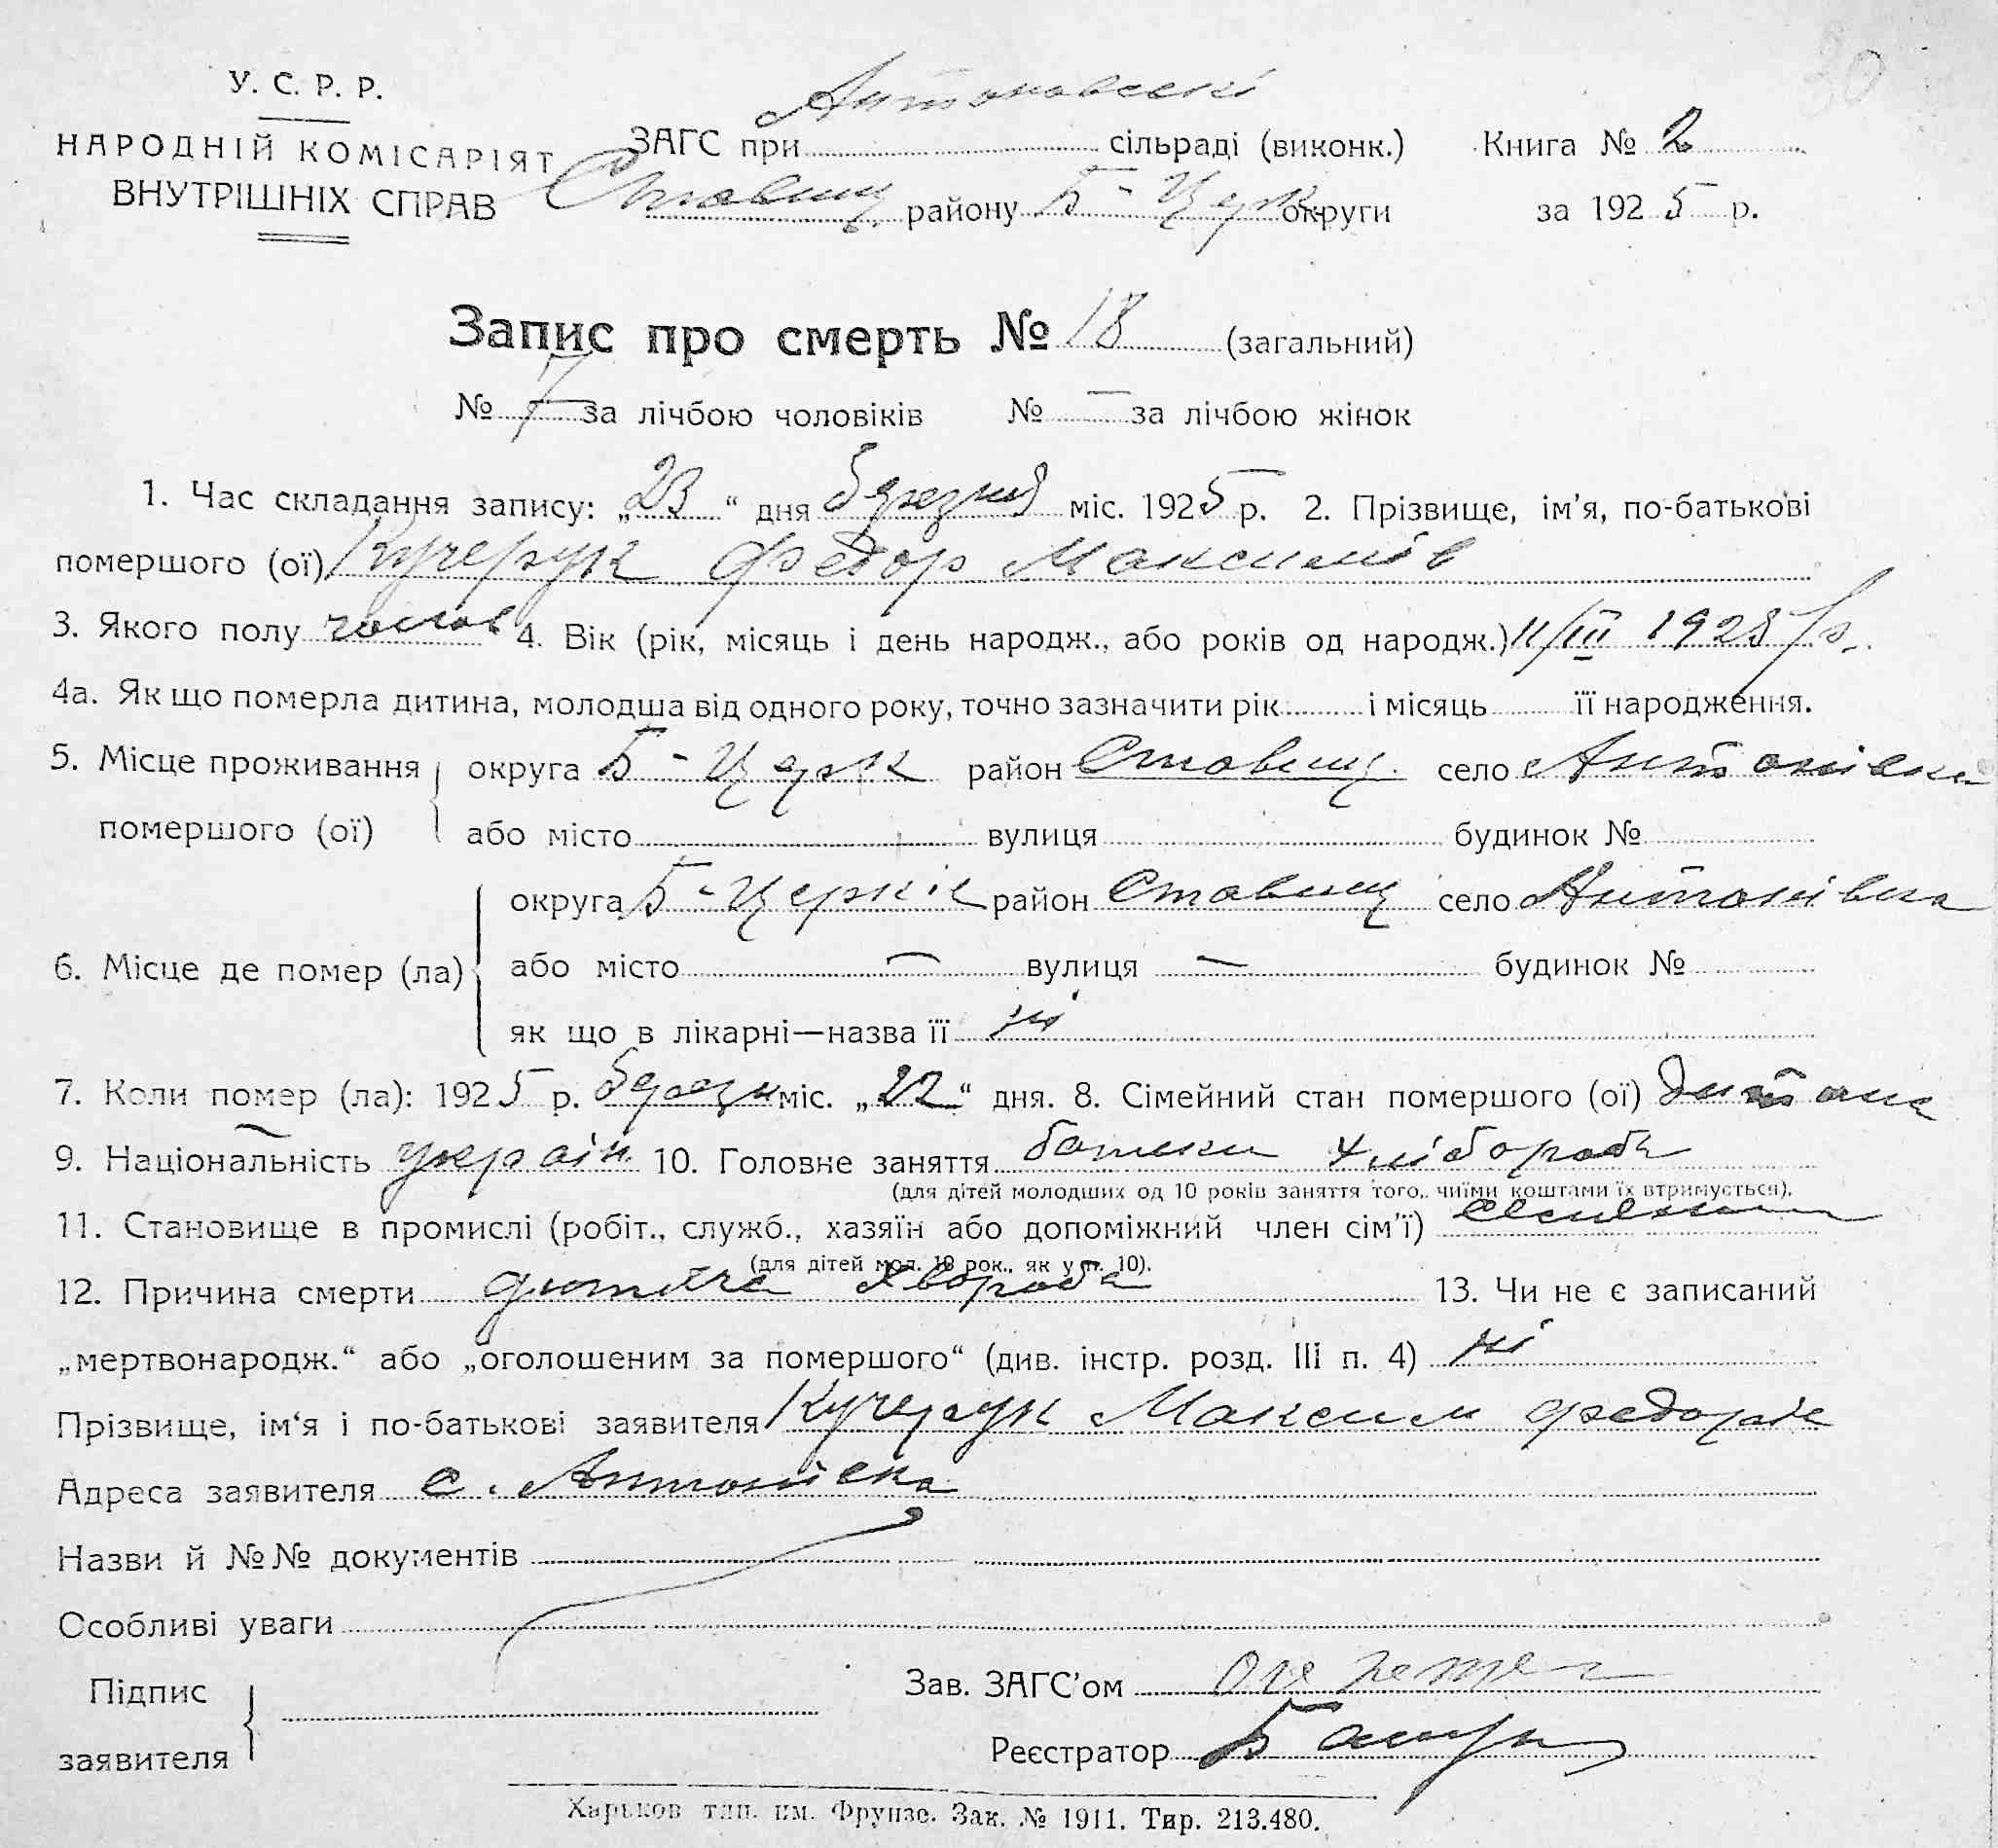 30
У. С. Р. Р.
НАРОДНІЙ КОМІСАРІЯТ
ВНУТРІШНІХ СПРАВ
ЗАГС при Антоновські сільраді (виконк.) Книга № 2
Ставищ. району Б-Церк округи за 1925 р.
Запис про смерть № 18 (загальний)
№ 7 за лічбою чоловіків № — за лічбою жінок
1. Час складання запису: „23“ дня березня міс. 1925 р. 2. Прізвище, ім'я, по-батькові
помершого (ої) Кучерук Федор Максимів
3. Якого полу чолов 4. Вік (рік, місяць і день народж., або років од народж.) 11/III 1923 р.
4а. Як що померла дитина, молодша від одного року, точно зазначити рік і місяць її народження.
5. Місце проживання помершого (ої) округа Б-Церк район Ставищ. село Антонівка
або місто вулиця будинок №
6. Місце де помер (ла) округа Б-Церків район Ставищ село Антонівка
або місто — вулиця — будинок №
як що в лікарні—назва її ні
7. Коли помер (ла): 1925 р. березн міс. „22“ дня. 8. Сімейний стан помершого (ої) дитина
9. Національність україн. 10. Головне заняття батьки хлібороби
(для дітей молодших од 10 років заняття того, чиїми коштами їх втримується).
11. Становище в промислі (робіт., служб., хазяїн або допоміжний член сім'ї)
(для дітей мол. 10 рок., як у п. 10).
12. Причина смерти дитяча хвороба 13. Чи не є записаний
„мертвонародж.“ або „оголошеним за помершого“ (див. інстр. розд. III п. 4) ні
Прізвище, ім‘я і по-батькові заявителя Кучерук Максим Федорів
Адреса заявителя с. Антонівка
Назви й №№ документів
Особливі уваги
Підпис заявителя
Зав. ЗАГС'ом
Реєстратор
Харьков тип. им. Фрунзе. Зак. № 1911. Тир. 213.480.